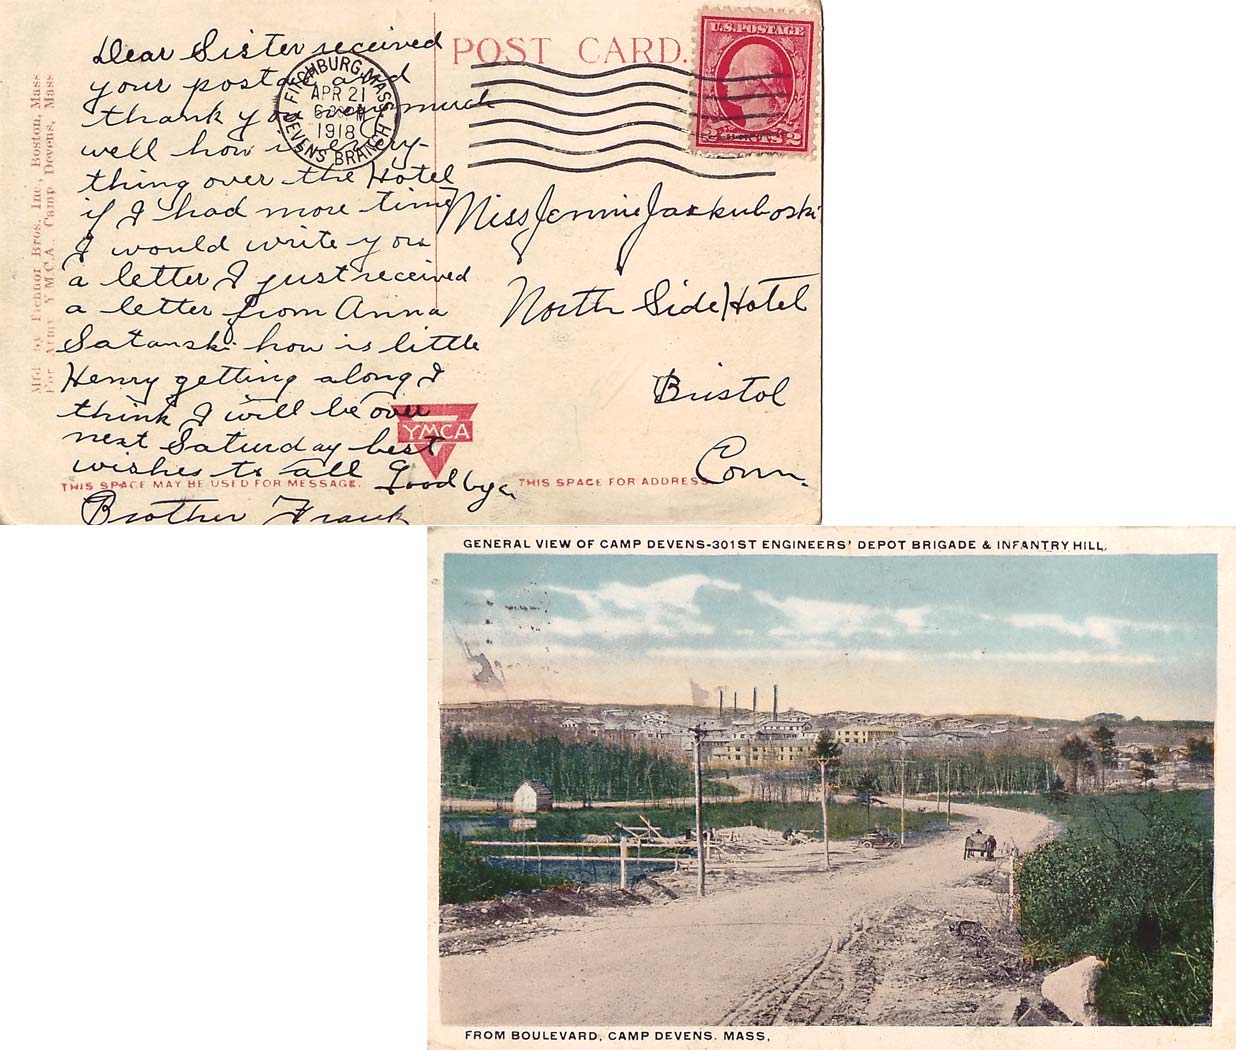 Dear Sister received
your postal and
thank you very much
well how is every-
thing over the Hotel
if I had more time
I would write you
a letter I just received
a letter from Anna
Satanski how is little
Henry getting along I
think I will be over
next Saturday best
wishes to all Good bye
Brother Frank
POST CARD.
U.S. POSTAGE
2 CENTS 2
FITCHBURG, MASS
APR 21
6 PM
1918
DEVENS BRANCH
Miss Jennie
North Side Hotel
Bristol
Conn.
YMCA
THIS SPACE MAY BE USED FOR MESSAGE.
THIS SPACE FOR ADDRESS
Mfd. by Tichnor Bros. Inc., Boston, Mass
For Army Y.M.C.A., Camp Devens, Mass
GENERAL VIEW OF CAMP DEVENS-301ST ENGINEERS' DEPOT BRIGADE & INFANTRY HILL,
FROM BOULEVARD, CAMP DEVENS. MASS.